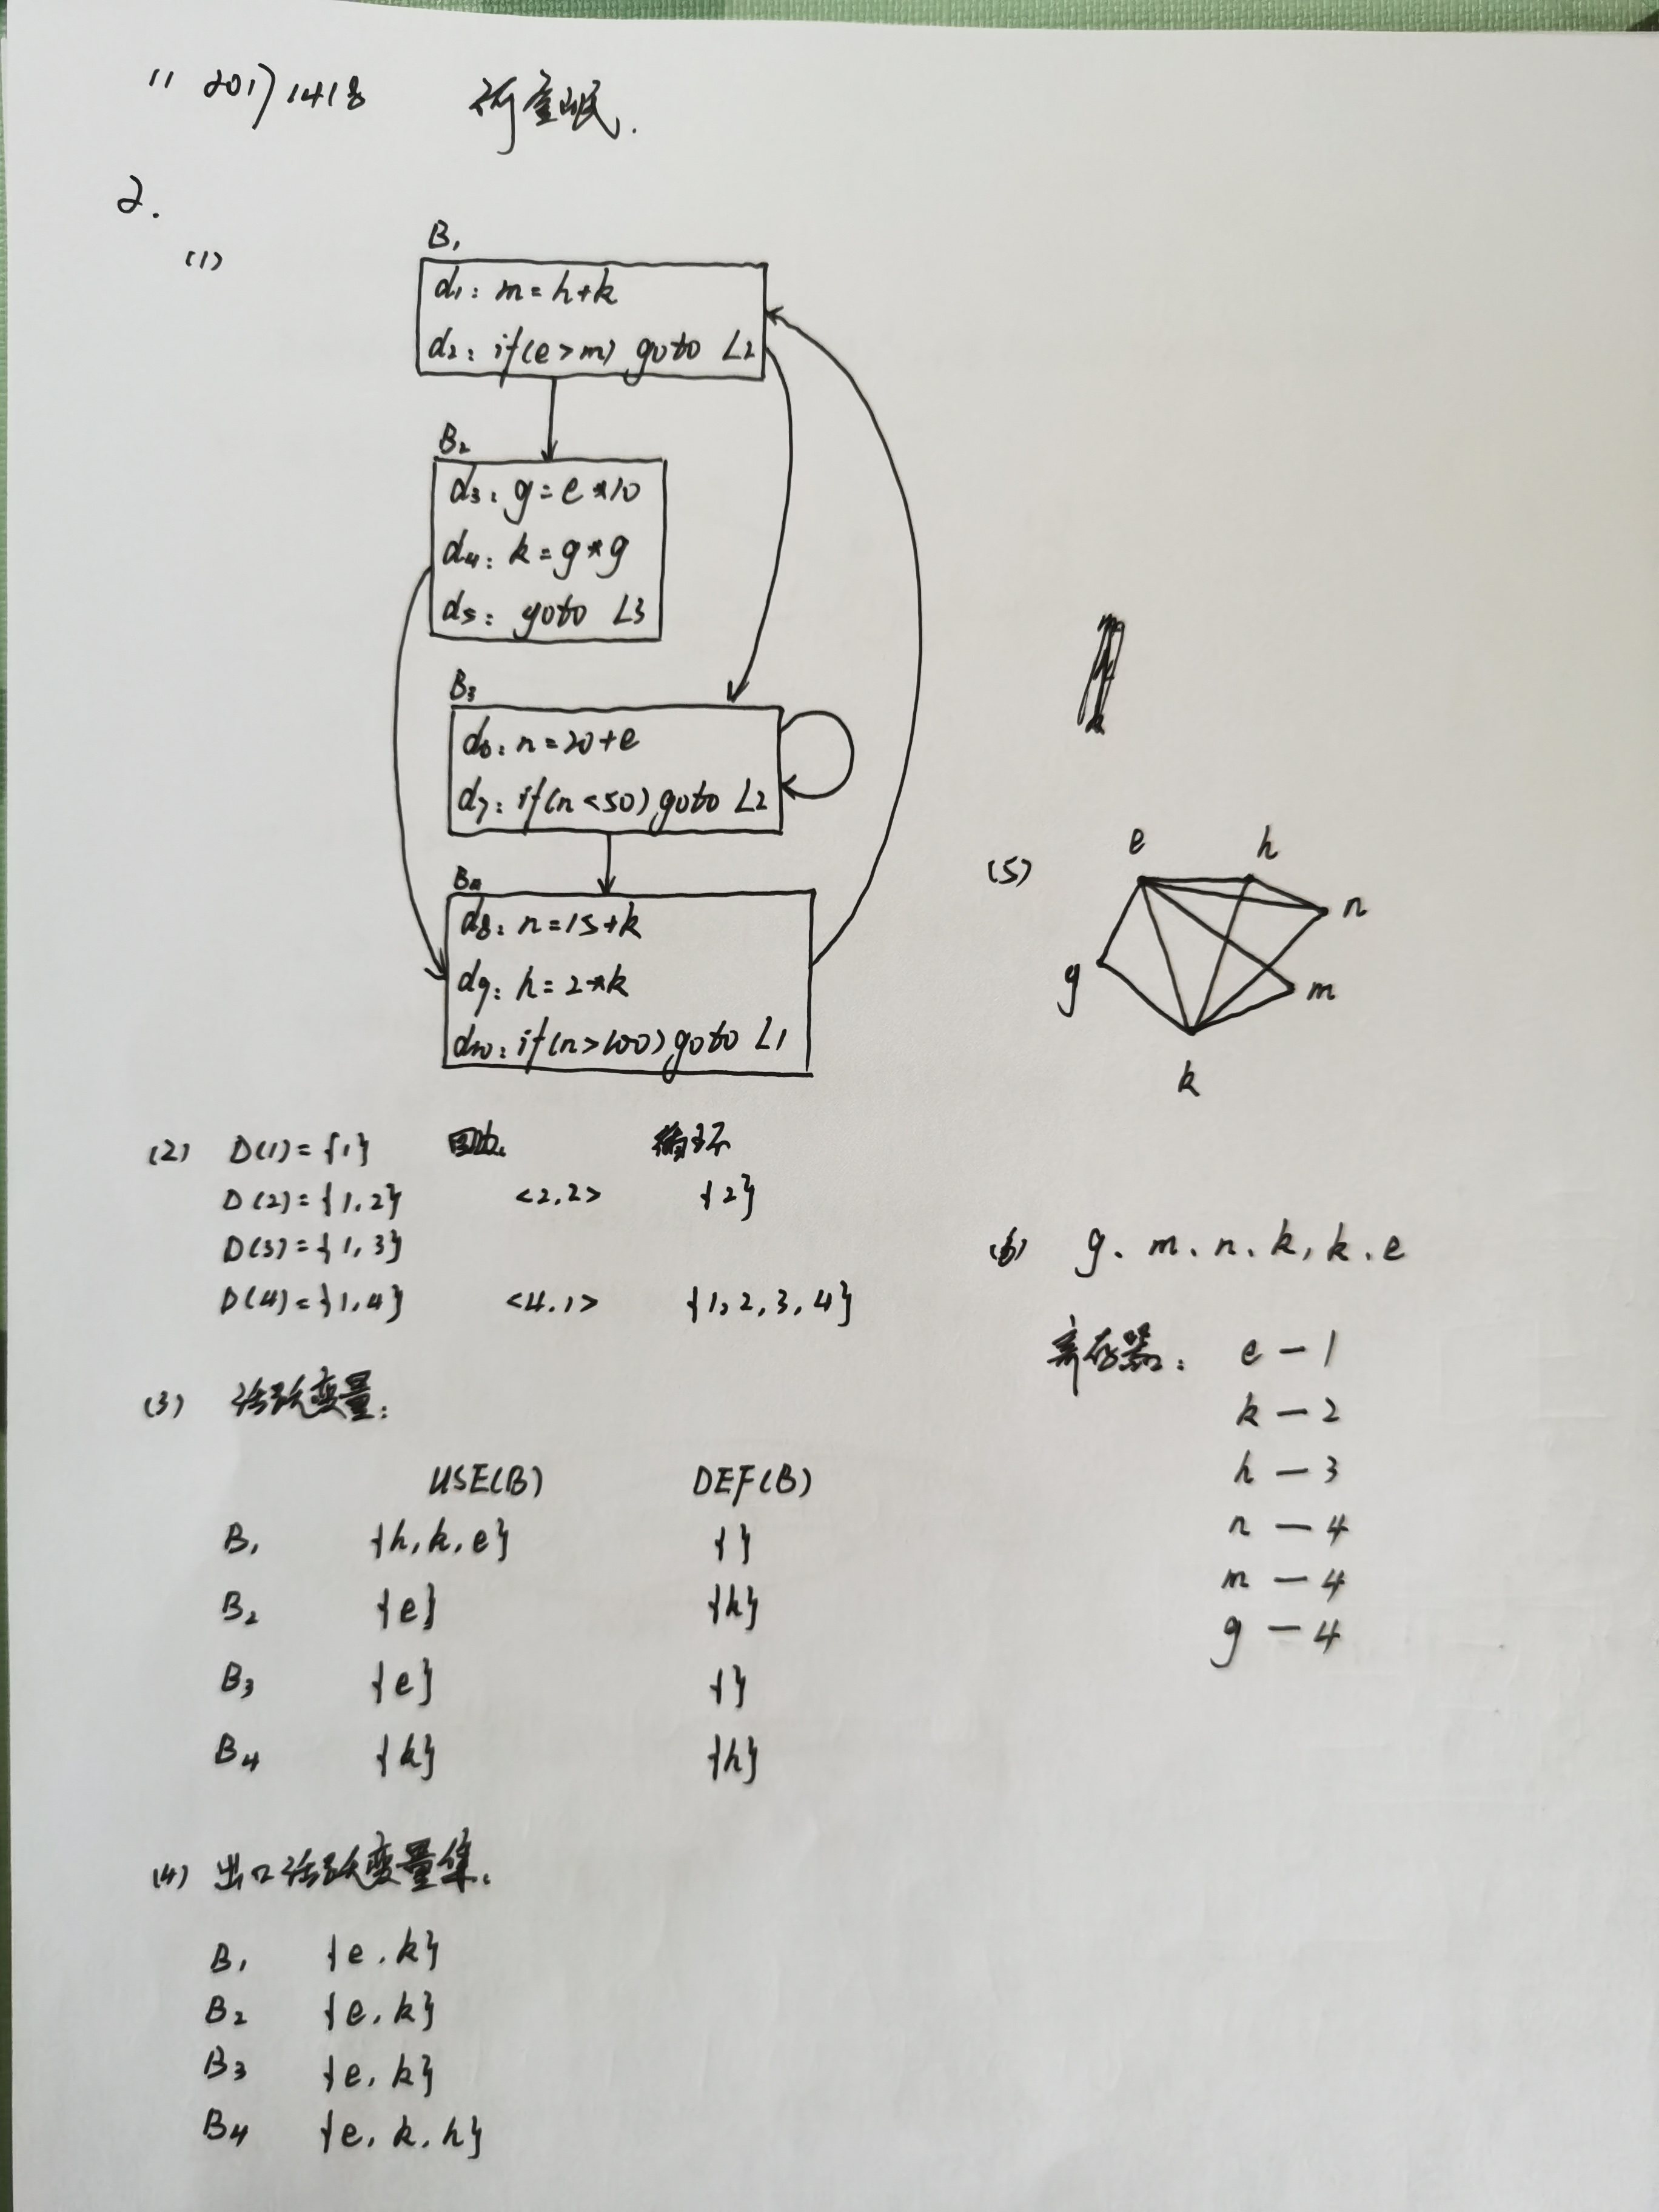 11 20171418
2.
(1)
B1
d1: m=h+k
d2: if(e>m) goto L2
B2
d3: g=e*10
d4: k=g*g
d5: goto L3
B3
d6: n=20+e
d7: if(n<50) goto L2
B4
d8: n=15+k
d9: h=2*k
d10: if(n>100) goto L1
(2) D(1)={1} 回边 循环
D(2)={1,2} <2,2> {2}
D(3)={1,3}
D(4)={1,4} <4,1> {1,2,3,4}
(3) 活跃变量:
USE(B) DEF(B)
B1 {h,k,e} { }
B2 {e} {k}
B3 {e} { }
B4 {k} {h}
(4) 出口活跃变量集.
B1 {e,k}
B2 {e,k}
B3 {e,k}
B4 {e,k,h}
(5)
e h
n
g
m
k
(6) g、m、n、k,k、e
寄存器: e-1
k-2
h-3
n-4
m-4
g-4